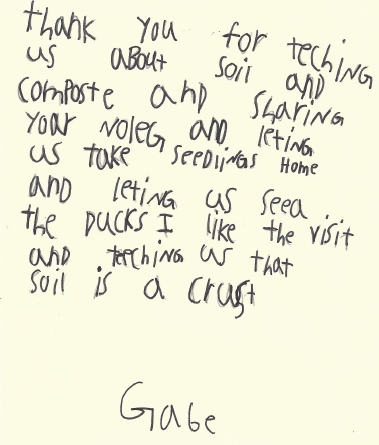 thank you for teching
us about soil and
composte and sharing
your noleg and leting
us take seedlings Home
and leting us seea
the ducks I like the visit
and teeching us that
soil is a crust
Gabe